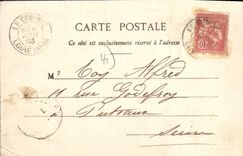 CARTE POSTALE
Ce côté est exclusivement réservé à l'adresse
LE CROISIC
LOIRE INFRE
M Coy Alfred
11 rue Godefroy
Puteaux
Seine